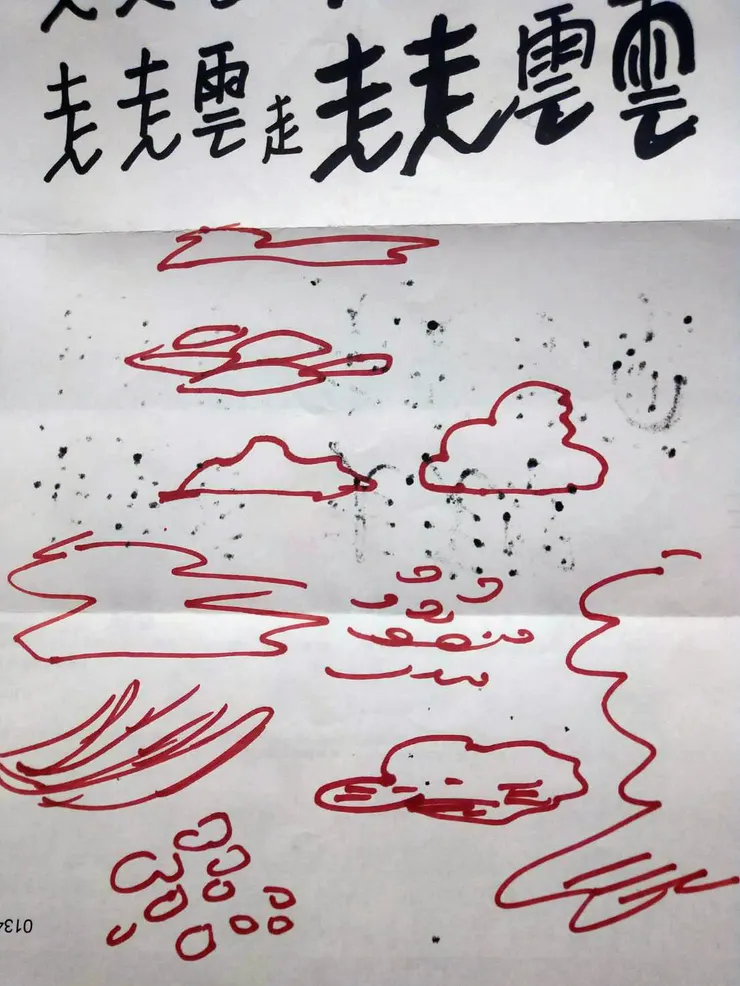 走走雲走走走雲雲
013